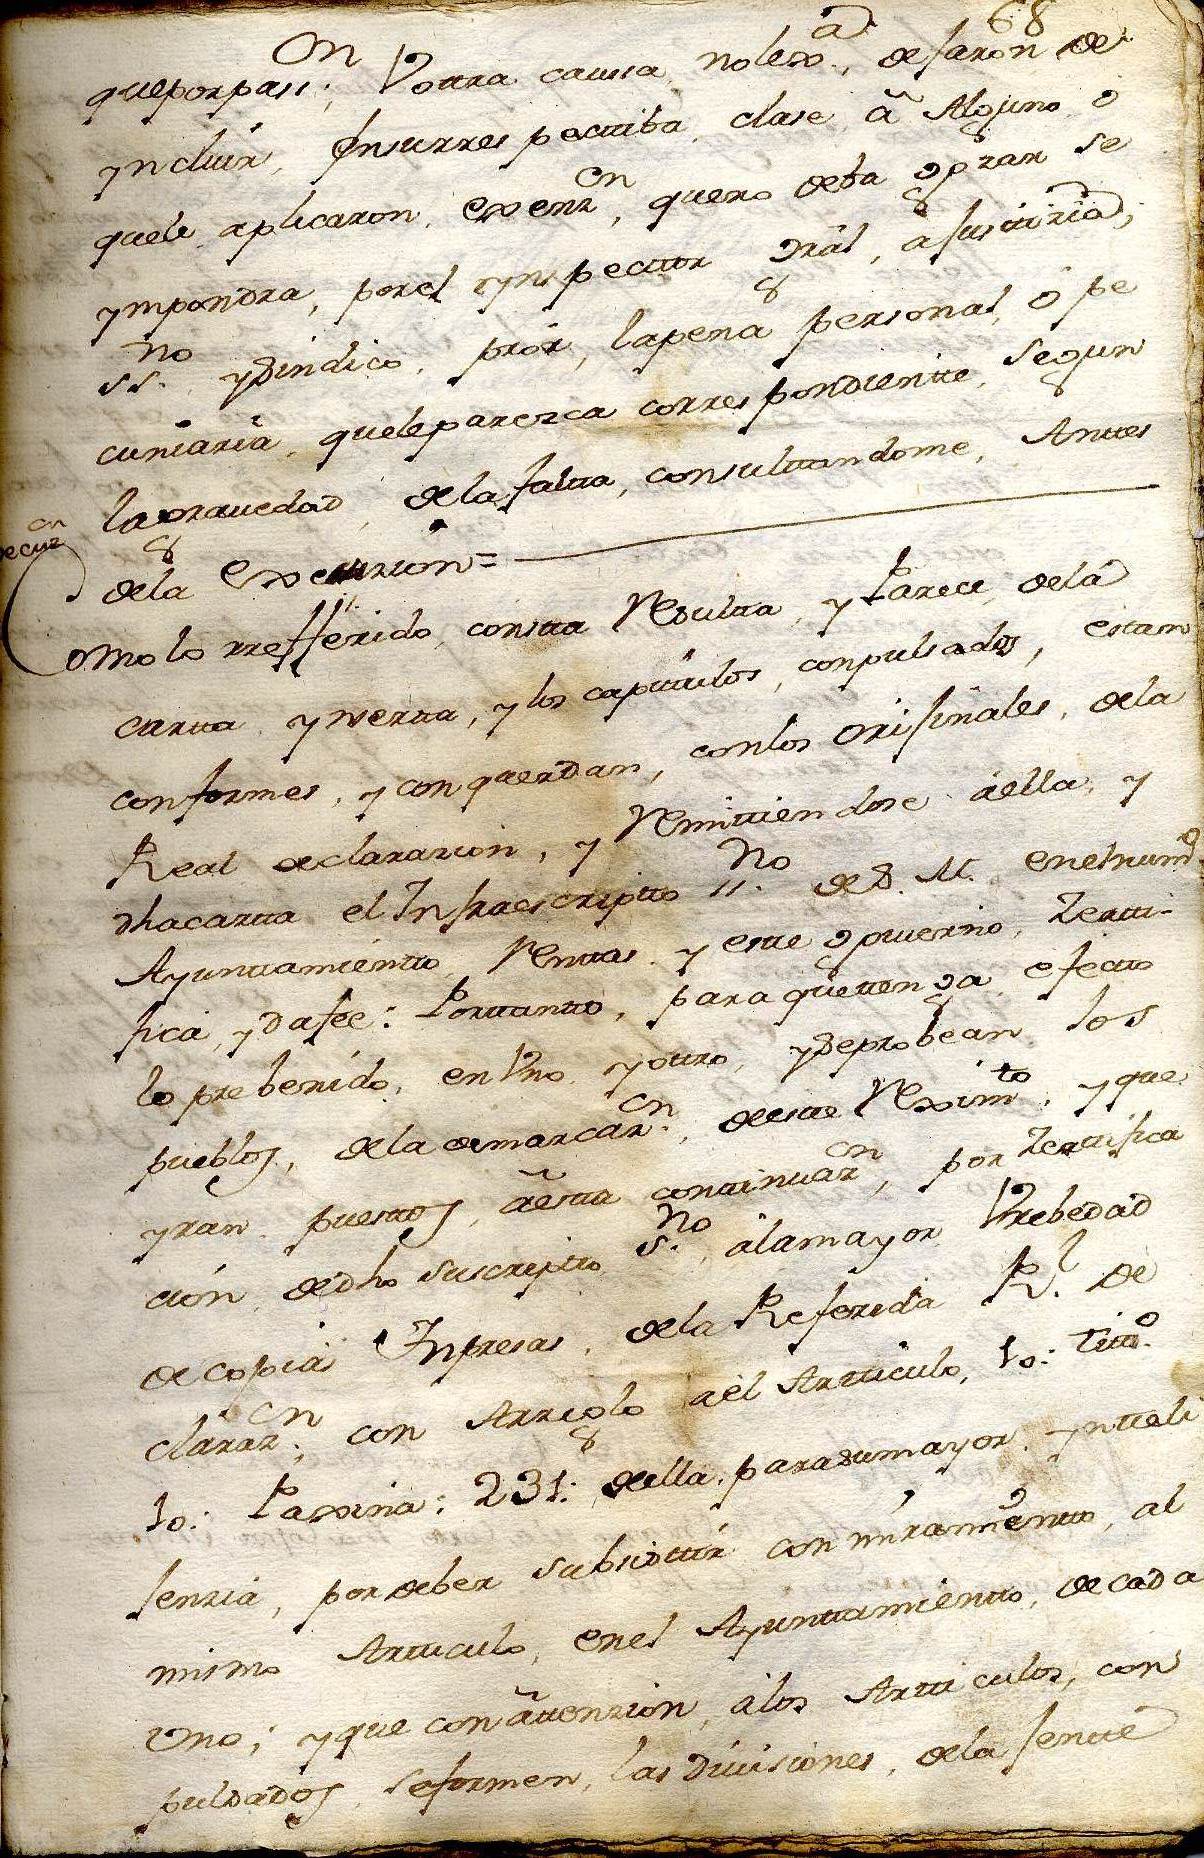 68
que por pass.on, V ottra caussa, no lex.a, dejaron de
yncluir, Ensurrespecttiba clase â Alguno, o
quele aplicaron, Exenz.on, que no deba gozar se
ympondra, por el ynspecttor Gràl, a Justizia,
ss.no y Síndico, prôr, la pena personal, ô pe
cuniaria, quele parezca correspondientte, segun
la gravedad, de la faltta, consulttandome, Anttes
de la Execuzion =
ecuz.on
Como lo rrefferido, constta Resultta, y Parece, de la
cartta, ynsertta, y los capittulos, conpulsados, estan
conformes, y conquerdan, con los orijinales, de la
Real declarazion, y Remittiendose âella, y
dha cartta el Infraescriptto ss.no de S. M. enel num.o
Ayunttamientto Renttas y estte govierno, Zertti-
fica, y da fee: Porttantto, para que ttenga efectto
lo prebenido, en Vno y ottro, y Se probean los
pueblos, de la demarcaz.on, de estte Rexim.to, y que
yran puesttos, âestta continuaz.on, por Zerttifica
cion, de dho suscriptto S.no, a la mayor Vrebedad
de copias Inpresas, de la Referida R.l de
claraz.on, con Arreglo âel Artticulo, 10: Titt.o
10: Paxina: 231: della, para su mayor yntteli
jenzia, por deber subsisttir con miramientto, al
mismo Artticulo, en el Ayunttamientto, de cada
Uno; y que con âttenzion, â los Artticulos, con
pulsados, se formen, las Divisiones, de la Jentte